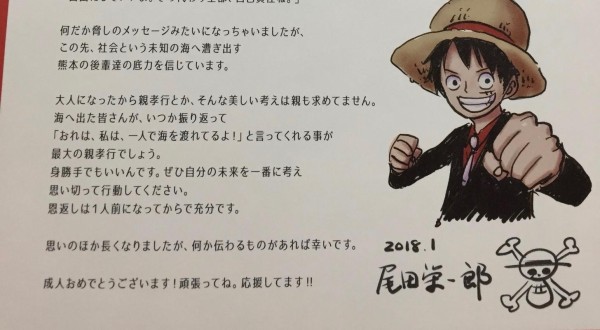 何だか脅しのメッセージみたいになっちゃいましたが、
この先、社会という未知の海へ漕ぎ出す
熊本の後輩達の底力を信じています。
大人になったから親孝行とか、そんな美しい考えは親も求めてません。
海へ出た皆さんが、いつか振り返って
「おれは、私は、一人で海を渡れてるよ!」と言ってくれる事が
最大の親孝行でしょう。
身勝手でもいいんです。ぜひ自分の未来を一番に考え
思い切って行動してください。
恩返しは1人前になってからで充分です。
思いのほか長くなりましたが、何か伝わるものがあれば幸いです。
成人おめでとうございます!頑張ってね。応援してます!!
2018.1
尾田栄一郎